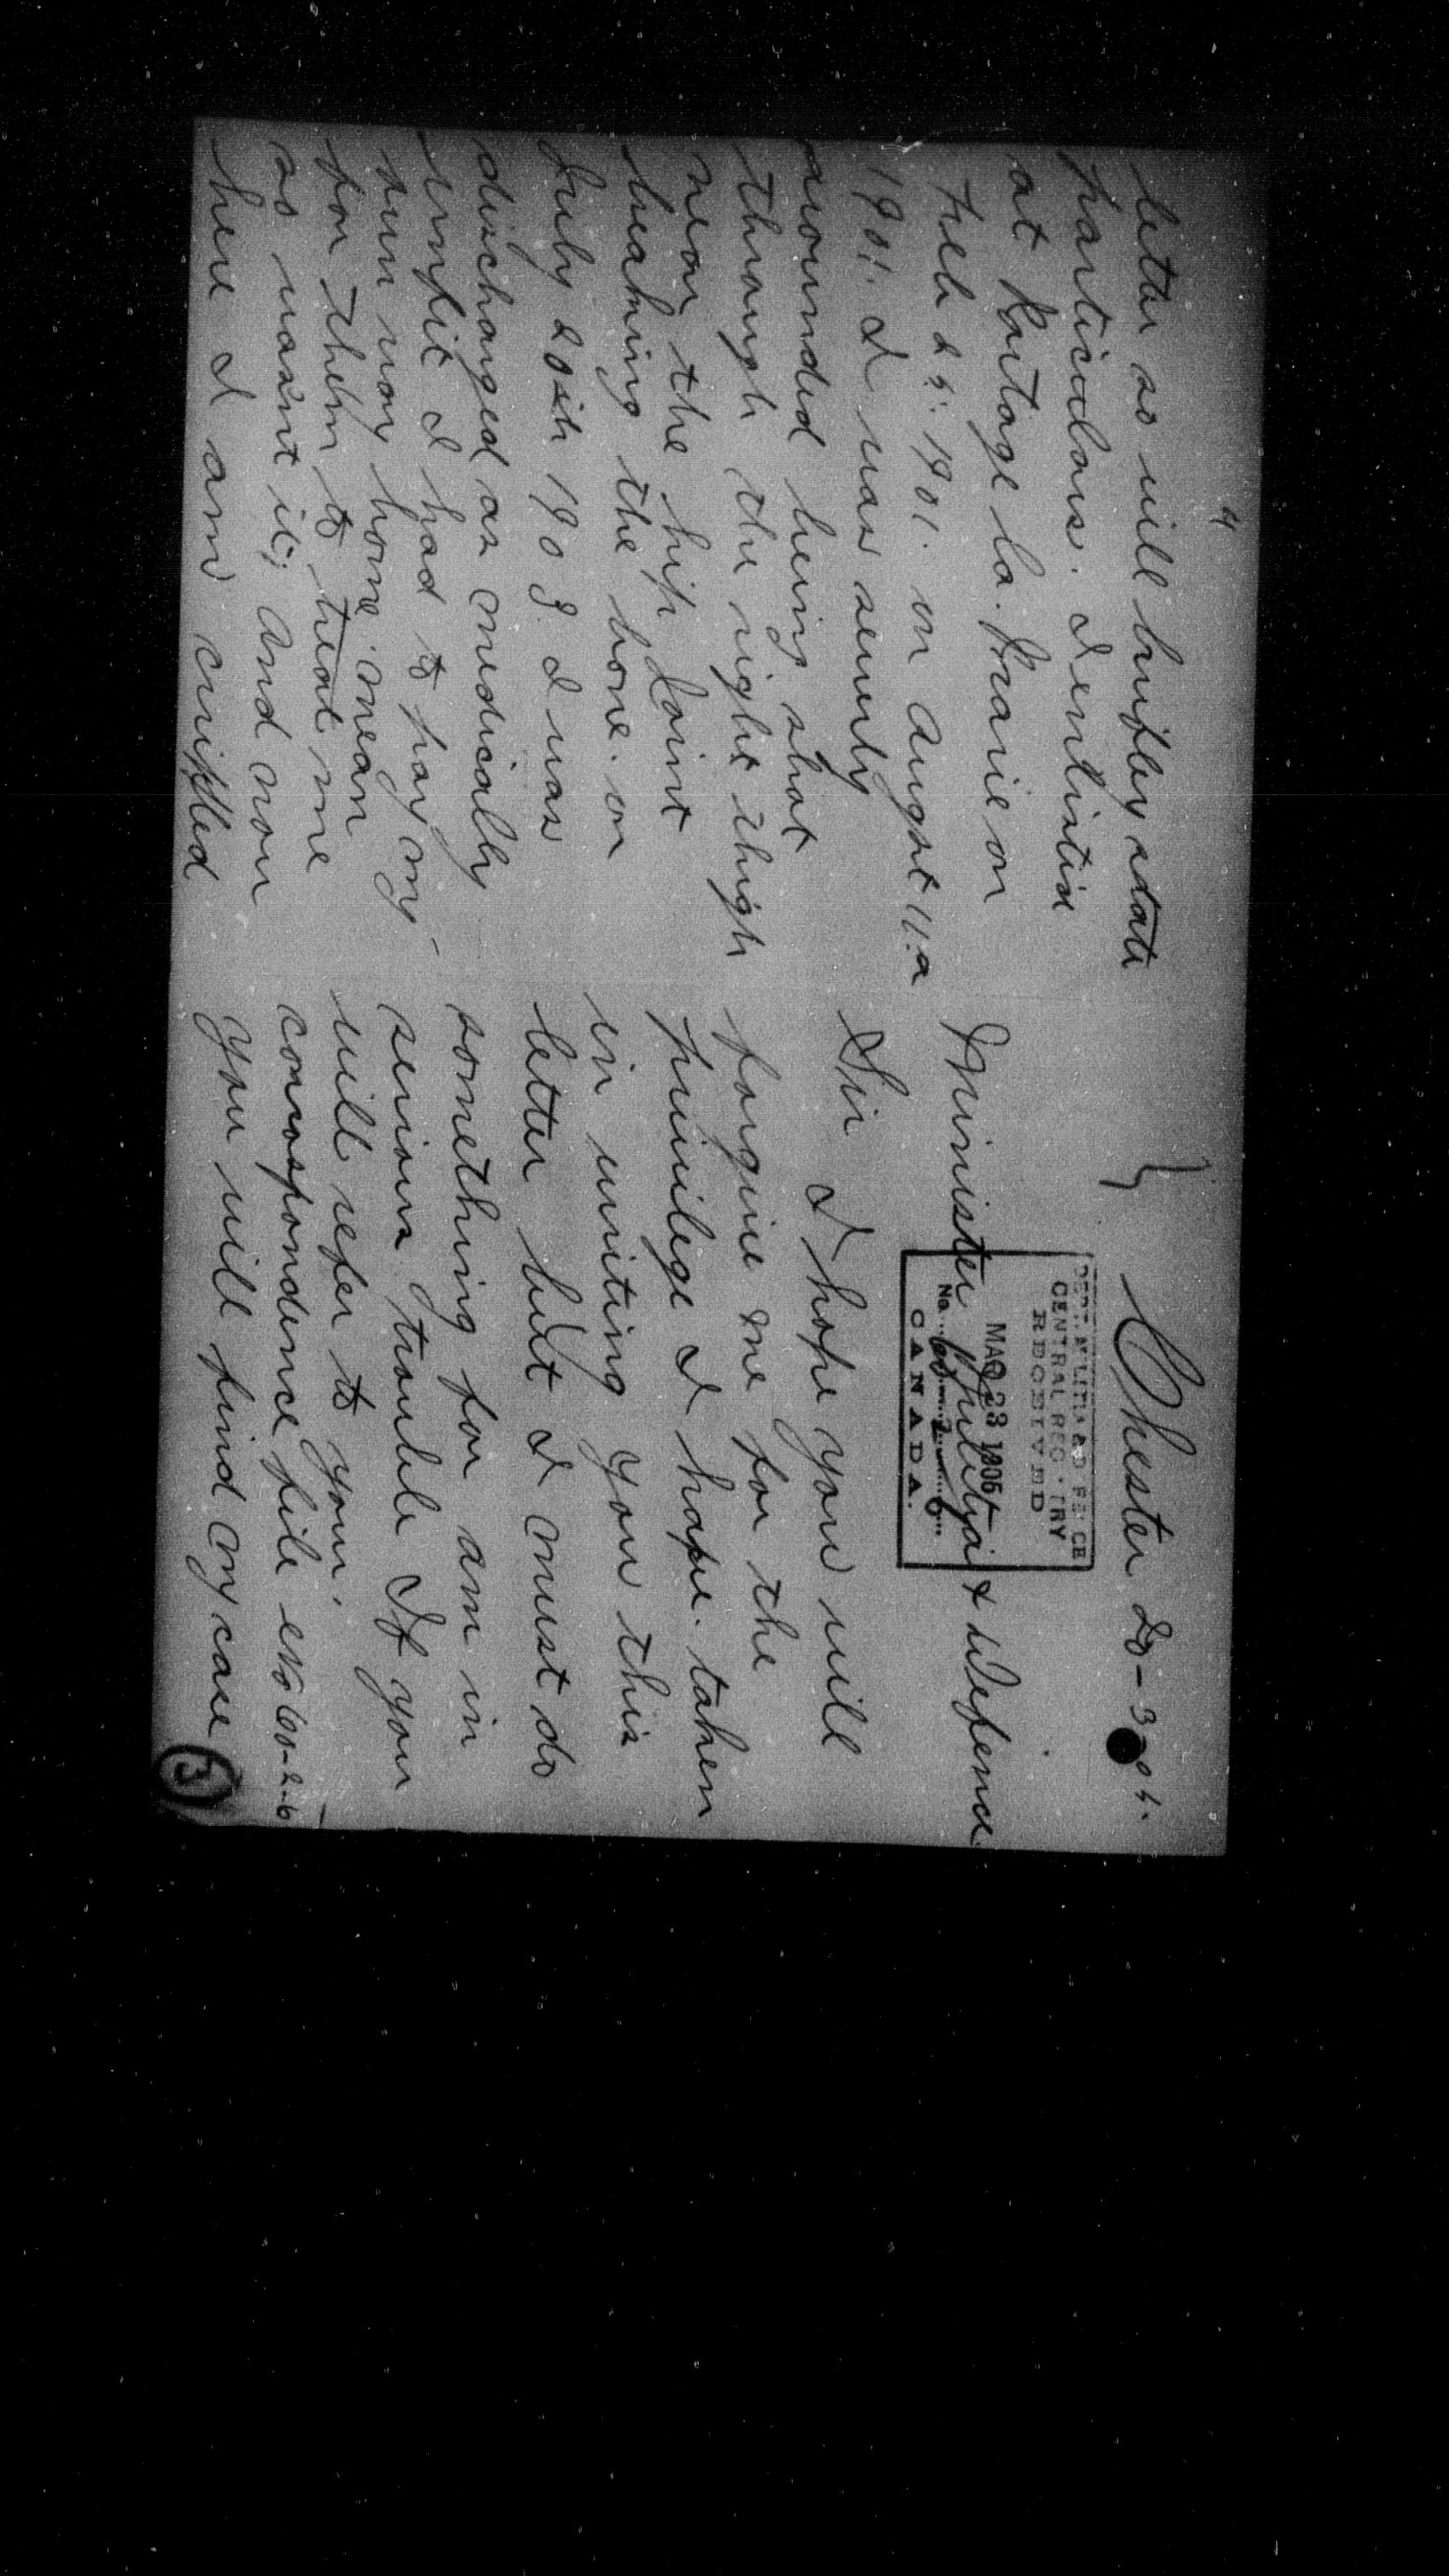 4
letter so will briefley state
particulars. I enlisted
at Portage la. Prairie on
Feb 25. 1901. on August 11.
1901. I was severly
wounded being shot
through the right thigh
near the hip joint
breaking the bone. on
July 20th 1903. I was
discharged as medically
unfit I had to pay my
own way home. mean
for them to treat me
so wasent it; And now
here I am crippled
Chester 20-3-05.
DEPT. MILITIA & DEFENCE
CENTRAL REGISTRY
RECEIVED
MAR 23 1905
No. 60-2-6
CANADA.
Minister Militia & Defence
Sir I hope you will
forgive me for the
privilege I have. taken
in writing you this
letter but I must do
something for am in
serious trouble If you
will refer to your.
correspondence file No 60-2-6
you will find my case
3